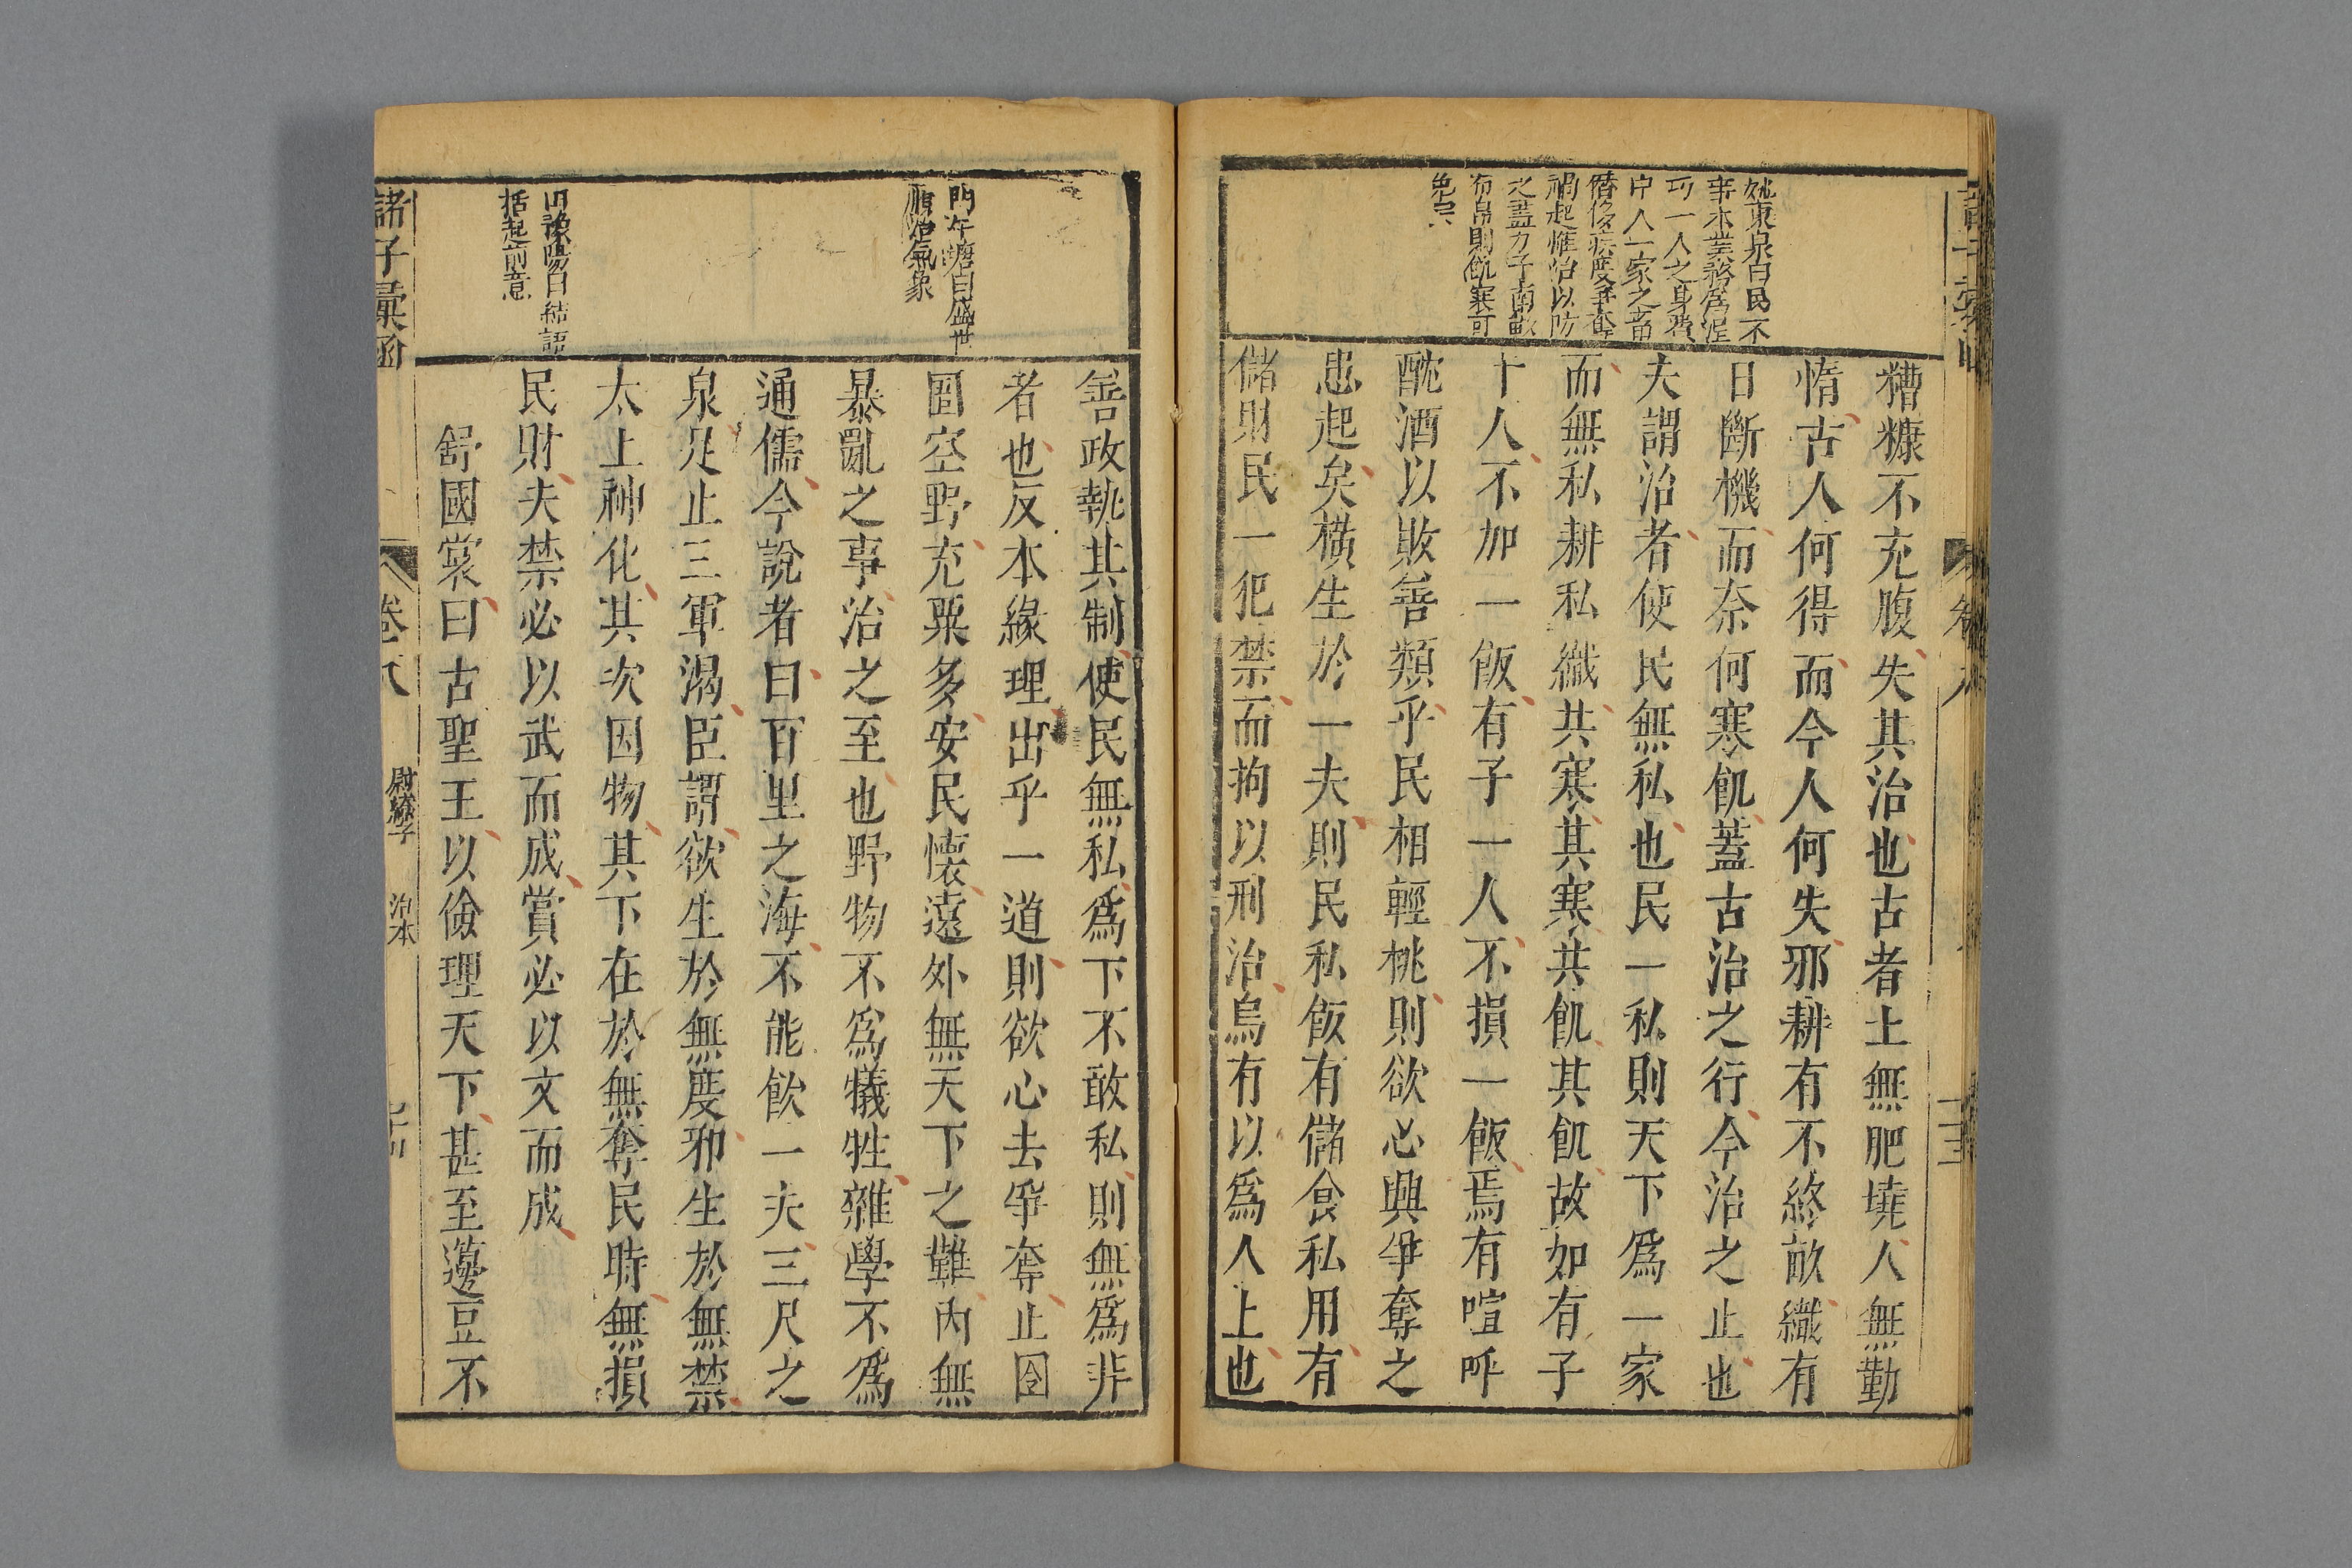 姚東泉曰民不
事本業務爲淫
巧一人之身費
中人一家之畜
僭侈無度爭奪
禍起惟治以防
之盡力于南畝
布帛則飢寒可
免矣
糟糠不充腹失其治也古者土無肥墝人無勤
惰古人何得而今人何失邪耕有不終畝織有
日斷機而奈何寒飢蓋古治之行今治之止也
夫謂治者使民無私也民一私則天下爲一家
而無私耕私織共寒其寒共飢其飢故如有子
十人不加一飯有子一人不損一飯焉有喧呼
酖酒以敗善類乎民相輕佻則欲心興爭奪之
患起矣橫生於一夫則民私飯有儲食私用有
儲財民一犯禁而拘以刑治烏有以爲人上也
門午塘曰盛世
順治氣象
田豫陽曰結語
括起前意
善政執其制使民無私爲下不敢私則無爲非
者也反本緣理出乎一道則欲心去爭奪止囹
圄空野充粟多安民懷遠外無天下之難內無
暴亂之事治之至也野物不爲犧牲雜學不爲
通儒今說者曰百里之海不能飲一夫三尺之
泉足止三軍渴臣謂欲生於無度邪生於無禁
太上神化其次因物其下在於無奪民時無損
民財夫禁必以武而成賞必以文而成
舒國裳曰古聖王以儉理天下甚至籩豆不
諸子彙函
卷八
尉繚子
治本